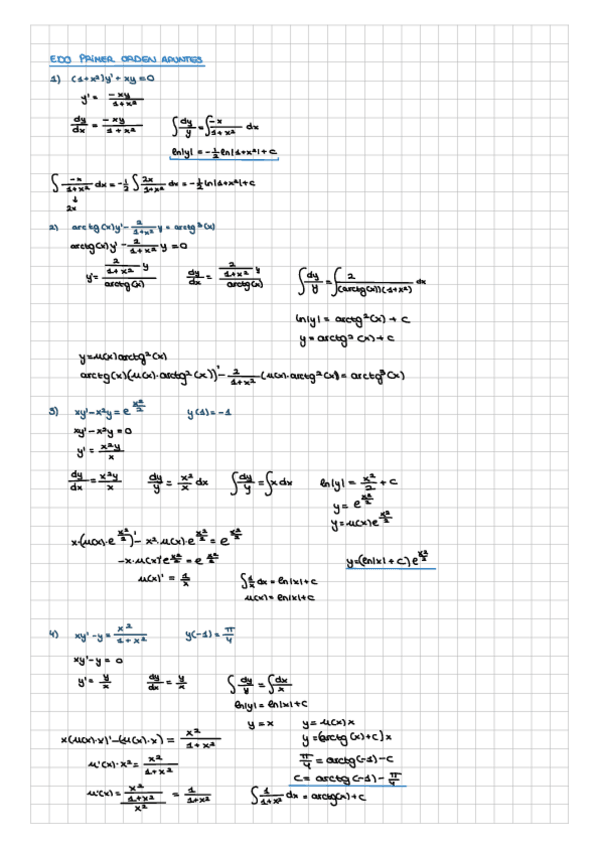 EDO PRIMER ORDEN APUNTES
1) (1+x²)y' + xy = 0
y' = -xy/(1+x²)
dy/dx = -xy/(1+x²)    ∫dy/y = ∫-x/(1+x²) dx
ln|y| = -1/2 ln|1+x²| + c
∫ -x/(1+x²) dx = -1/2 ∫ 2x/(1+x²) dx = -1/2 ln|1+x²| + c
↓
2x
2) arctg(x)y' - 2/(1+x²) y = arctg³(x)
arctg(x)y' - 2/(1+x²) y = 0
y' = (2/(1+x²) y)/arctg(x)    dy/dx = (2/(1+x²) y)/arctg(x)    ∫dy/y = ∫ 2/((arctg(x))(1+x²)) dx
ln|y| = arctg²(x) + c
y = arctg²(x) + c
y = u(x) arctg²(x)
arctg(x)(u(x)·arctg²(x))' - 2/(1+x²) (u(x)·arctg²(x)) = arctg³(x)
3) xy' - x²y = e^(x²/2)    y(1) = -1
xy' - x²y = 0
y' = x²y/x
dy/dx = x²y/x    dy/y = x²/x dx    ∫dy/y = ∫x dx    ln|y| = x²/2 + c
y = e^(x²/2)
y = u(x)e^(x²/2)
x·(u(x)·e^(x²/2))' - x²·u(x)·e^(x²/2) = e^(x²/2)
-x·u(x)'e^(x²/2) = e^(x²/2)    y = (ln|x| + c) e^(x²/2)
u(x)' = 1/x    ∫1/x dx = ln|x| + c
u(x) = ln|x| + c
4) xy' - y = x²/(1+x²)    y(-1) = π/4
xy' - y = 0
y' = y/x    dy/dx = y/x    ∫dy/y = ∫dx/x
ln|y| = ln|x| + c
y = x    y = u(x) x
x(u(x)·x)' - (u(x)·x) = x²/(1+x²)    y = [arctg(x) + c] x
u'(x)·x² = x²/(1+x²)    π/4 = arctg(-1) - c
c = arctg(-1) - π/4
u'(x) = (x²/(1+x²))/x² = 1/(1+x²)    ∫ 1/(1+x²) dx = arctg(x) + c